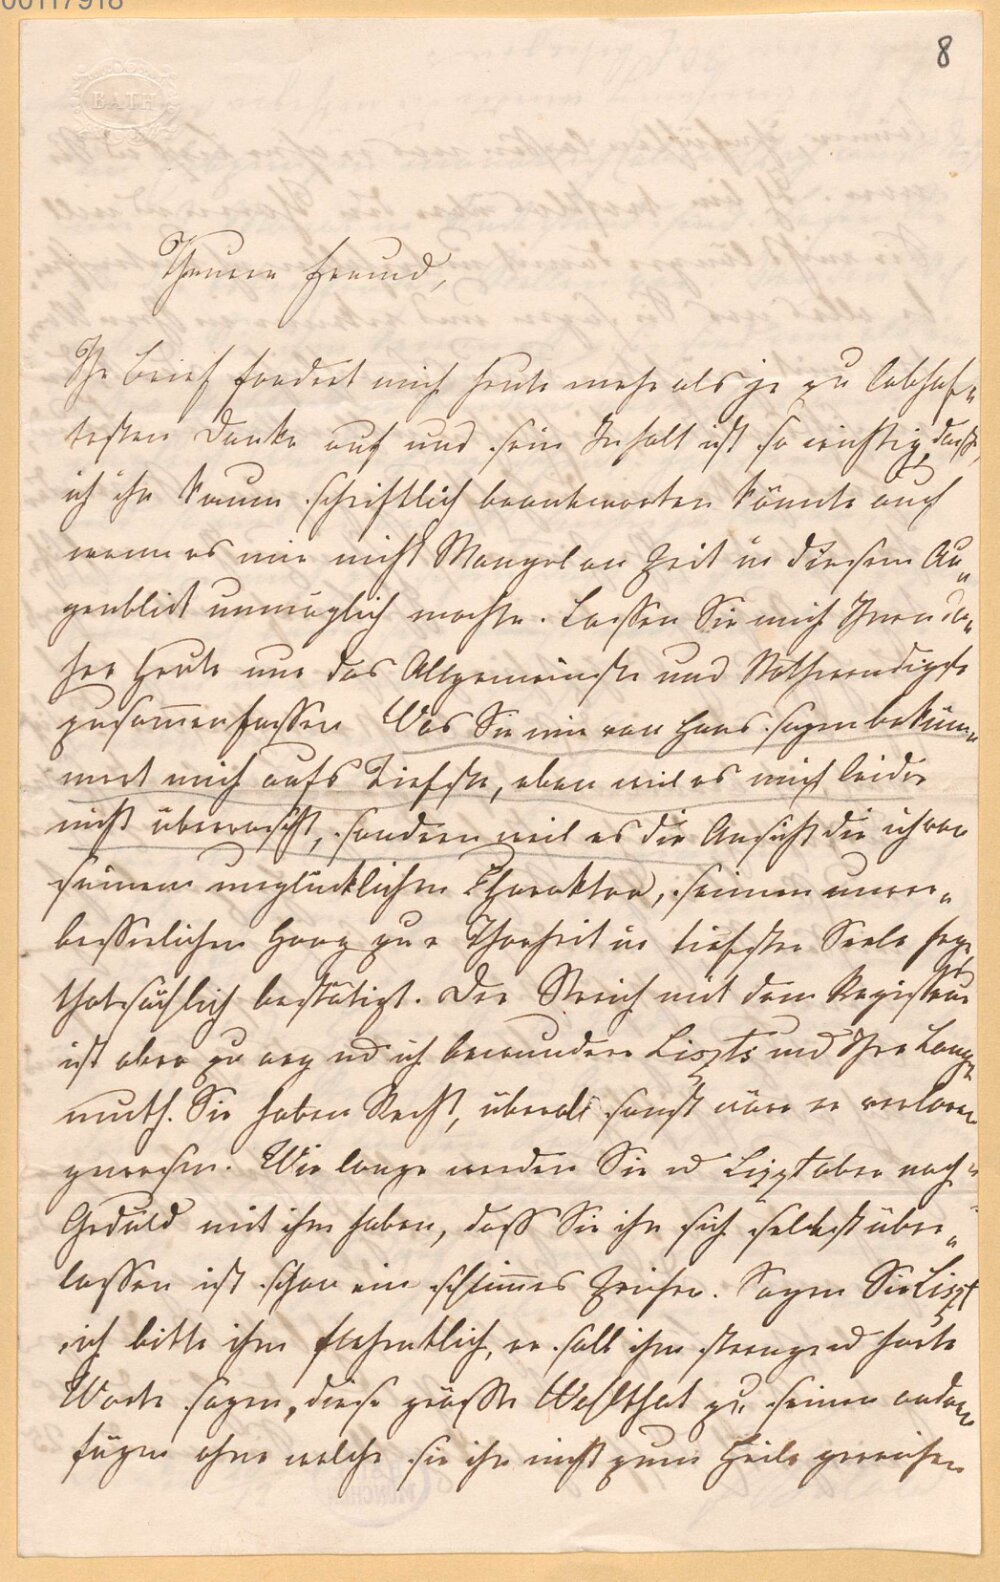 00117918
8
BATH
Theurer Freund,
Ihr Brief fordert mich heute mehr als je zu lebhaf„
testen Danke auf und sein Inhalt ist so wichtig, dass
ich ihn kaum schriftlich beantworten könnte auch
wenn es mir nicht Mangel an Zeit in diesem Au„
genblick unmöglich machte. Lassen Sie mich Ihnen da„
her heute nur das Allgemeinste und Nothwendigste
zusammenfassen Was Sie mir von Hans sagen beküm„
mert mich aufs Tiefste, eben weil es mich leider
nicht überrascht, sondern weil es die Ansicht die ich von
seinem unglücklichen Charakter, seinem unver„
besserlichen Hang zur Thorheit in tiefster Seele hege
thatsächlich bestätigt. Der Streich mit dem Register
ist aber zu arg und ich bewundere Liszts und Ihre Lang„
muth. Sie haben Recht, überall sonst wäre er verloren
gewesen. Wie lange werden Sie und Liszt aber noch
Geduld mit ihm haben, dass Sie ihn sich selbst über„
lassen ist schon ein schlimmes Zeichen. Sagen Sie Liszt
ich bitte ihn flehentlich, er soll ihm streng und harte
Worte sagen, diese grösste Wohlthat zu seinen andern
fügen ohne welche sie ihm nicht zum Heile gereichen
MÜNCHEN